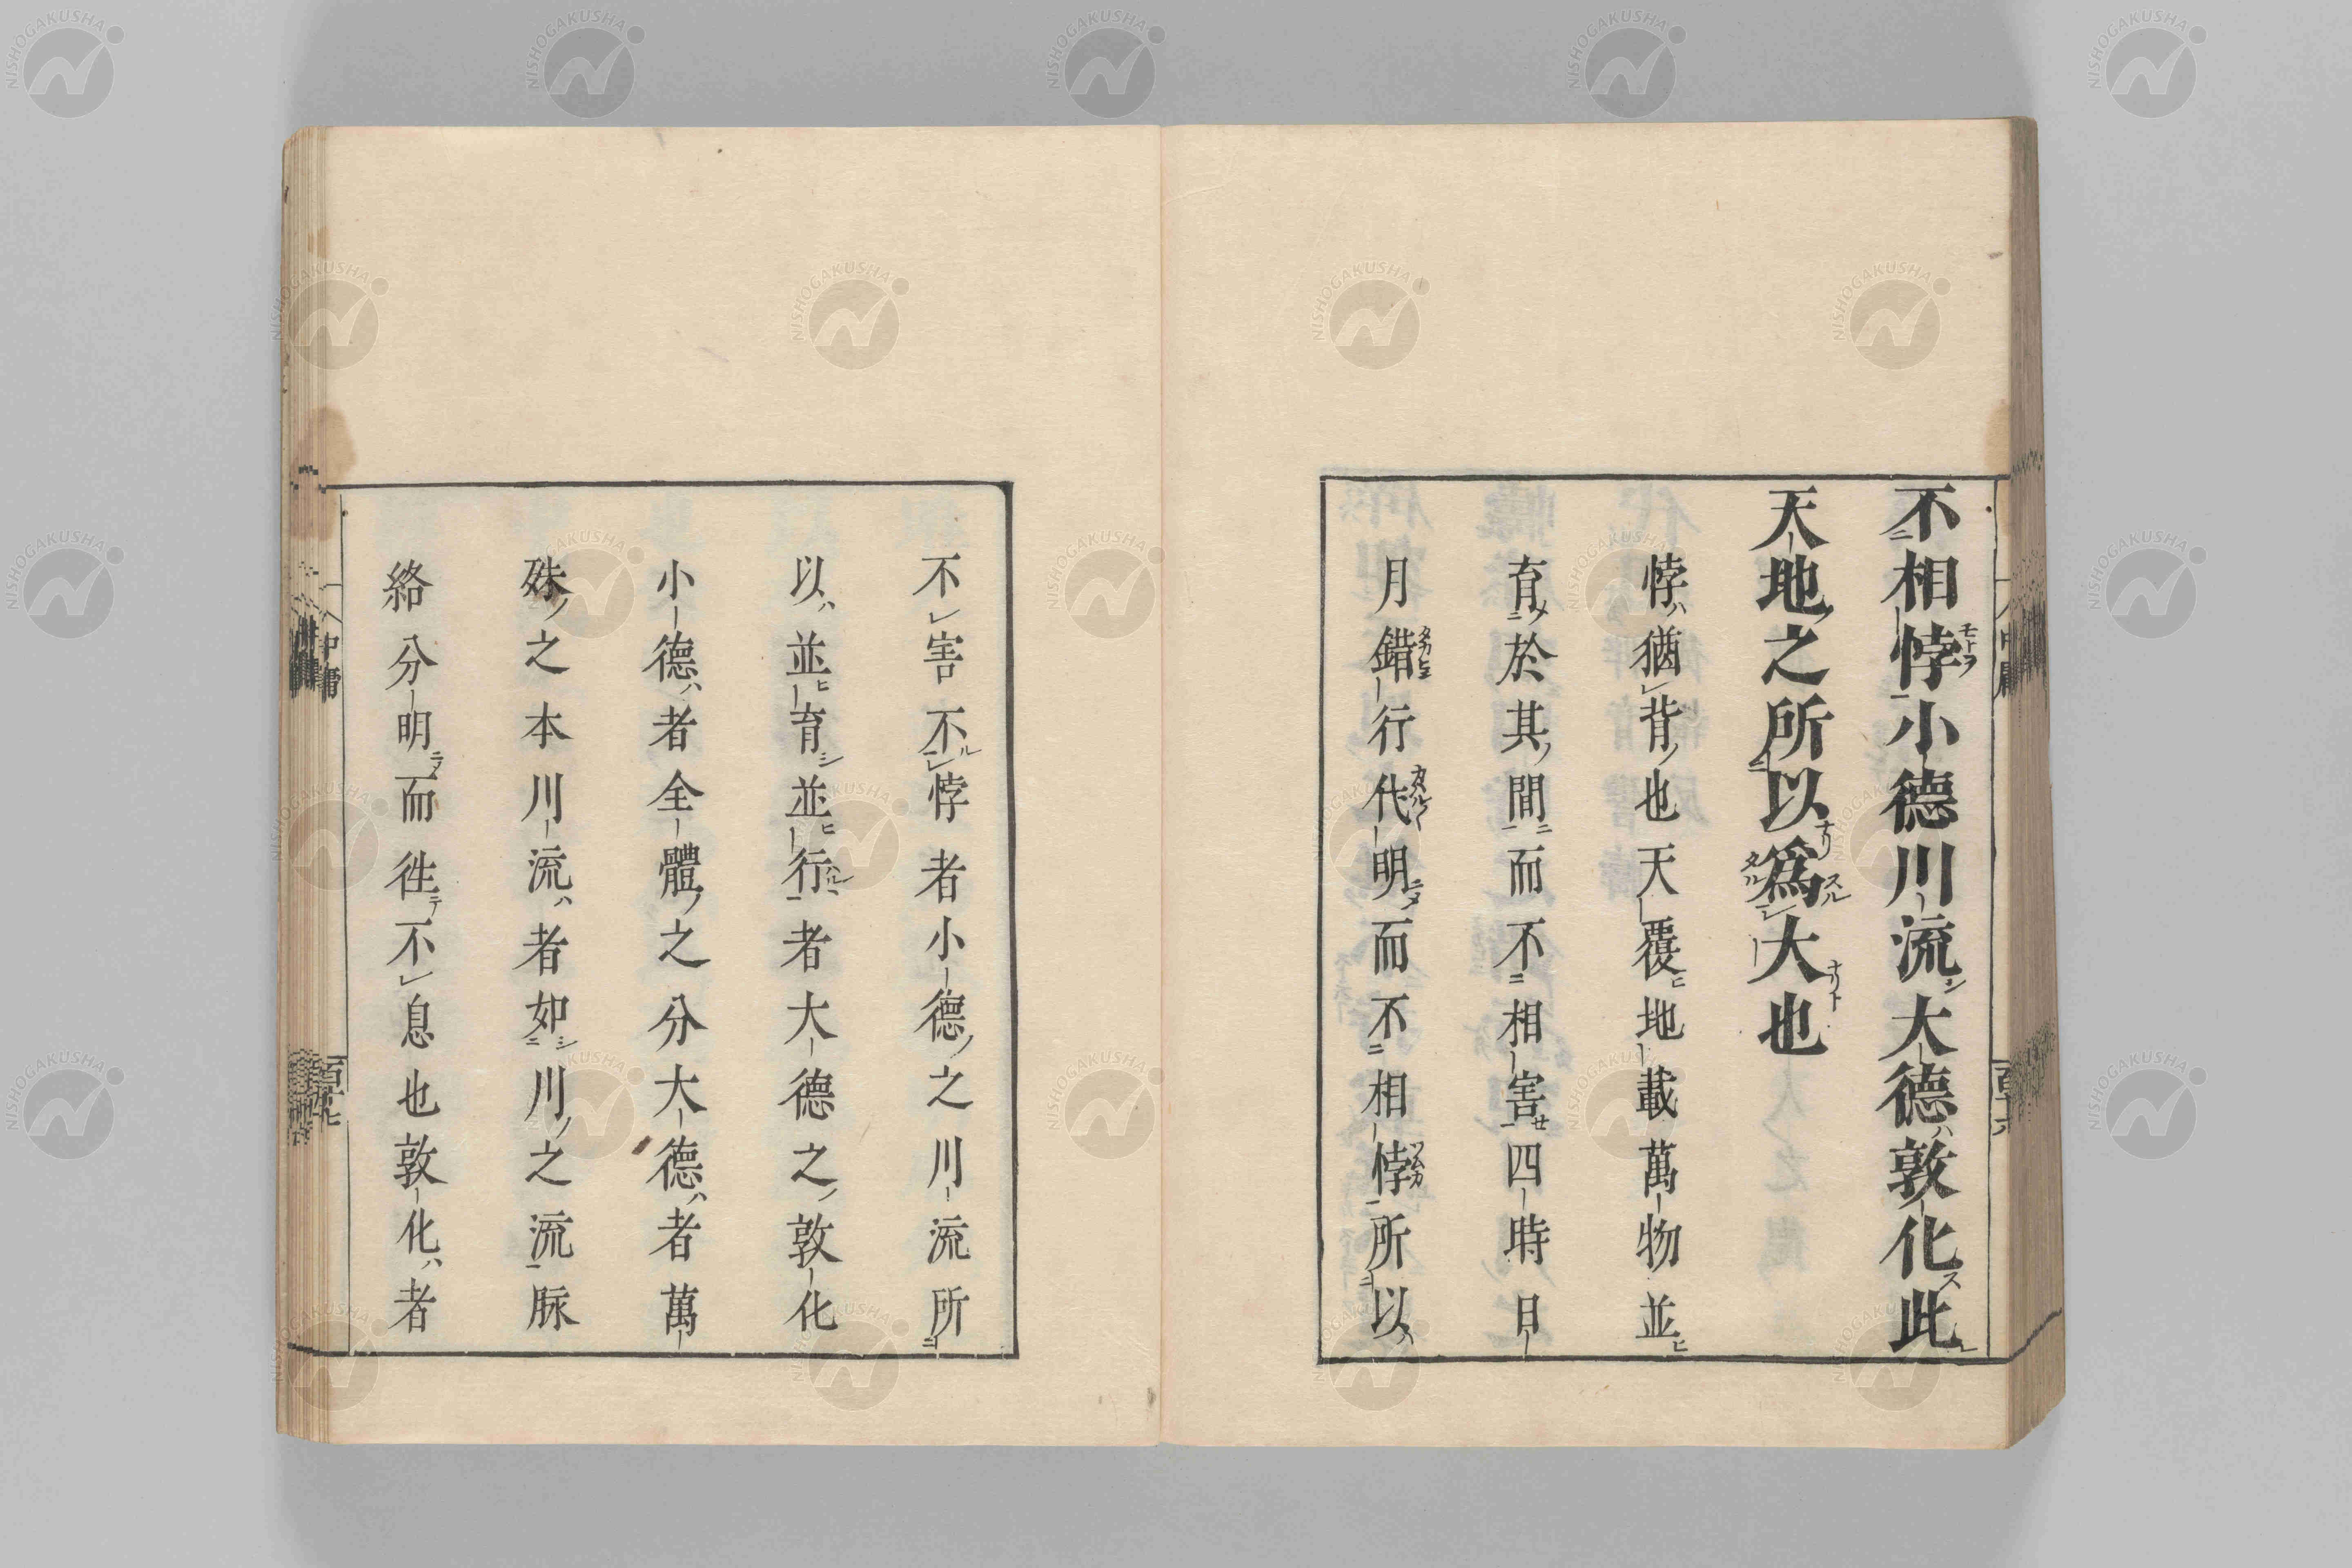 不相悖小德川流大德敦化此
天地之所以爲大也
悖猶背也天覆地載萬物並
育於其間而不相害四時日
月錯行代明而不相悖所以
不害不悖者小德之川流所
以並育並行者大德之敦化
小德者全體之分大德者萬
殊之本川流者如川之流脉
絡分明而徃不息也敦化者
中庸
NISHOGAKUSHA